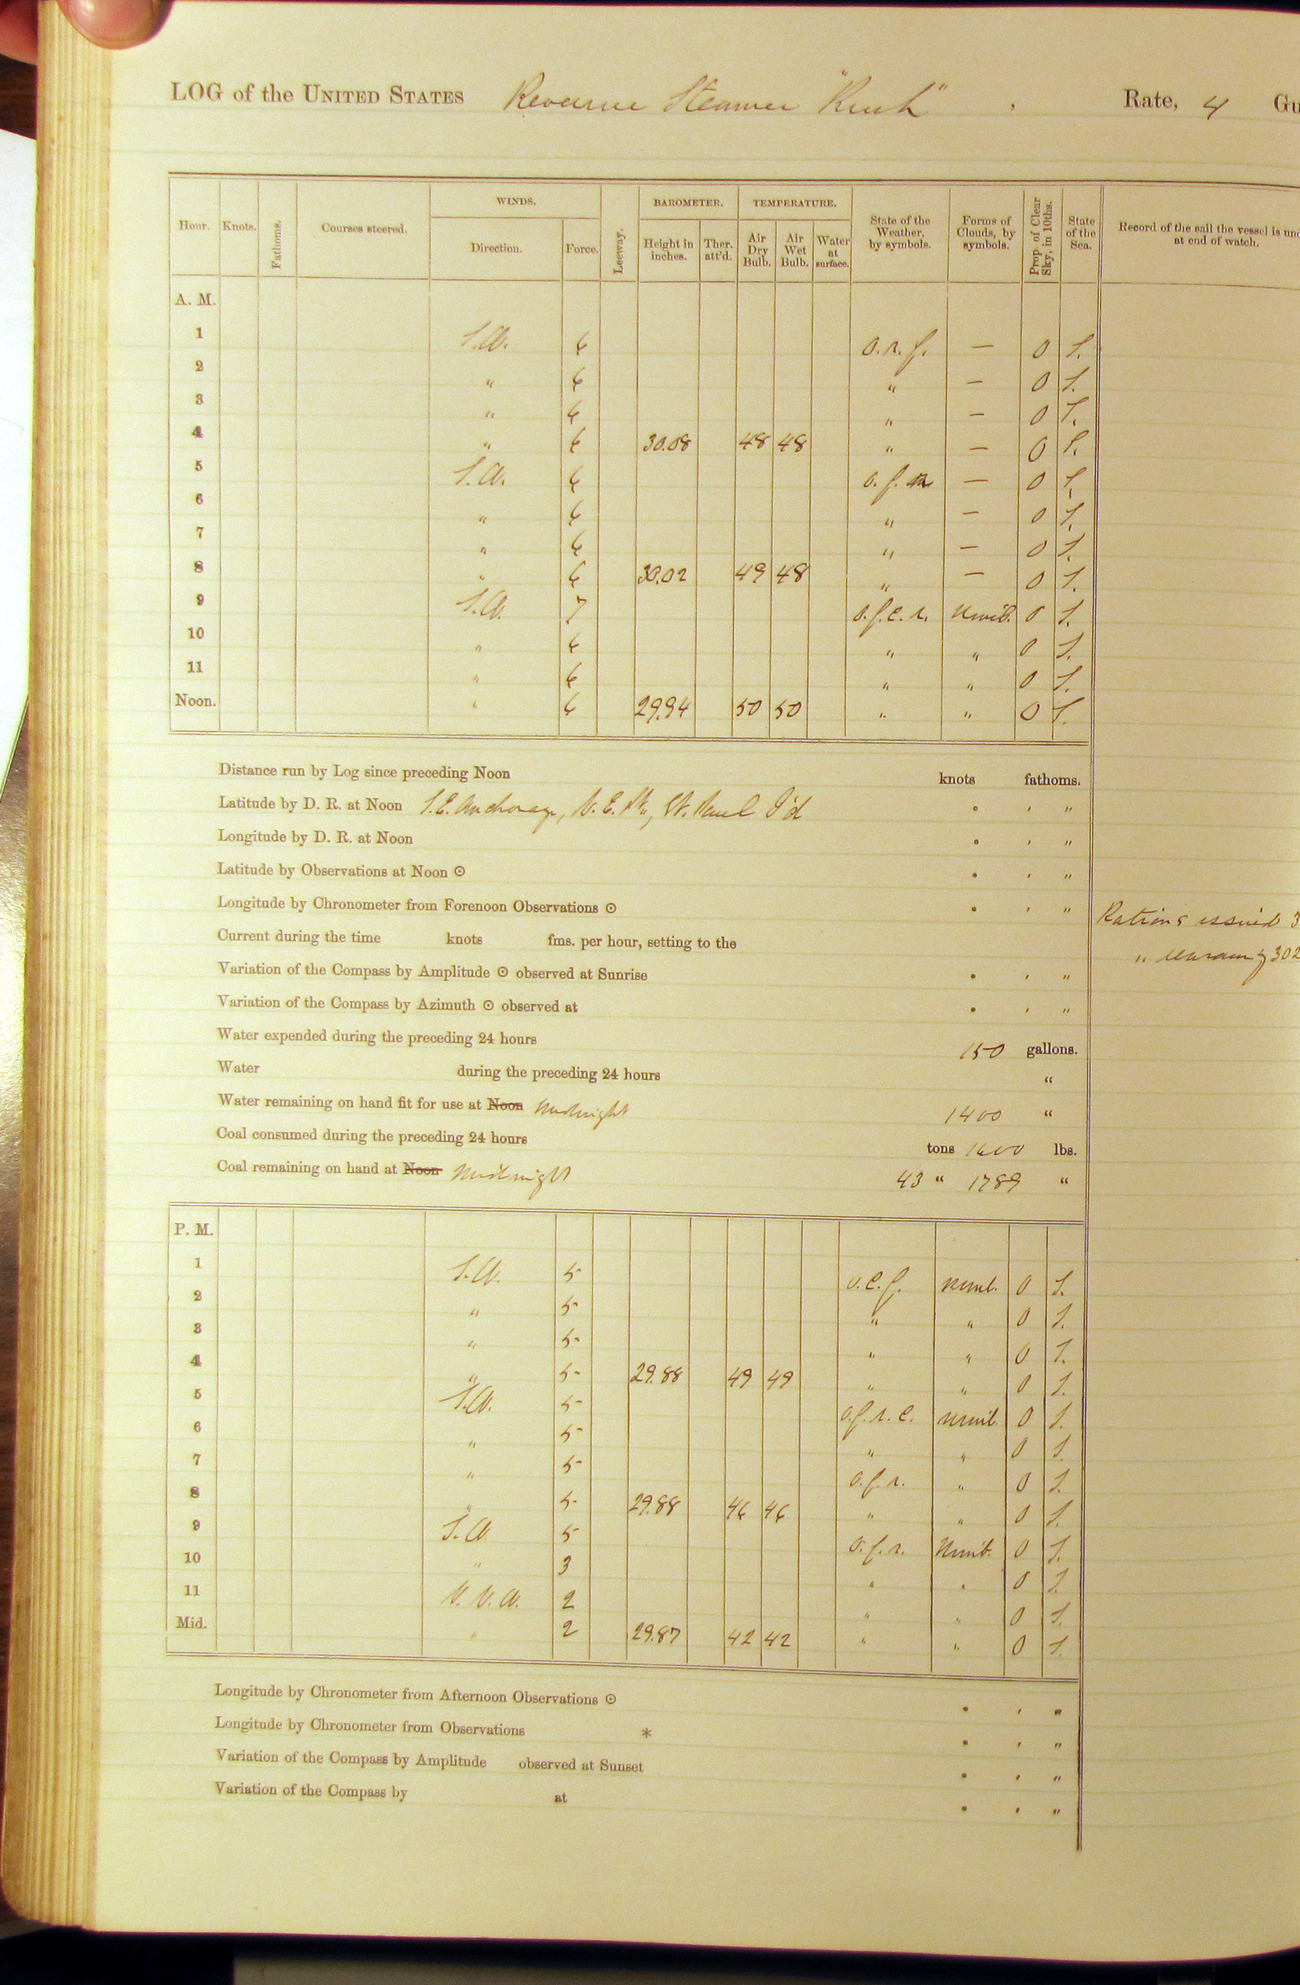 LOG of the UNITED STATES Revenue Steamer "Rush", Rate, 4 Gu
Hour. Knots. Fathoms. Courses steered. WINDS. Direction. Force. Leeway. BAROMETER. Height in inches. Ther. att'd. TEMPERATURE. Air Dry Bulb. Air Wet Bulb. Water at surface. State of the Weather, by symbols. Forms of Clouds, by symbols. Prop. of Clear Sky, in 10ths. State of the Sea. Record of the sail the vessel is und at end of watch.
A. M.
1 S.W. 6 o.r.f. — 0 S.
2 " 6 " — 0 S.
3 " 6 " — 0 S.
4 " 6 30.08 48 48 " — 0 S.
5 S.W. 6 o.f.r — 0 S.
6 " 6 " — 0 S.
7 " 6 " — 0 S.
8 " 6 30.02 49 48 " — 0 S.
9 S.W. 7 o.f.c.r. Nimb. 0 S.
10 " 6 " " 0 S.
11 " 6 " " 0 S.
Noon. " 6 29.94 50 50 " " 0 S.
Distance run by Log since preceding Noon knots fathoms.
Latitude by D. R. at Noon S.E. Anchorage, N.E. Pt., St. Paul I'd ° ' "
Longitude by D. R. at Noon ° ' "
Latitude by Observations at Noon ⊙ ° ' "
Longitude by Chronometer from Forenoon Observations ⊙ ° ' "
Rations issued 3
Current during the time knots fms. per hour, setting to the
" remaing 302
Variation of the Compass by Amplitude ⊙ observed at Sunrise ° ' "
Variation of the Compass by Azimuth ⊙ observed at ° ' "
Water expended during the preceding 24 hours 150 gallons.
Water during the preceding 24 hours "
Water remaining on hand fit for use at Noon Midnight 1400 "
Coal consumed during the preceding 24 hours tons 1600 lbs.
Coal remaining on hand at Noon Midnight 43 " 1789 "
P. M.
1 S.W. 5 o.c.f. Nimb. 0 S.
2 " 5 " " 0 S.
3 " 5 " " 0 S.
4 " 5 29.88 49 49 " " 0 S.
5 S.W. 5 o.f.r.c. Nimb 0 S.
6 " 5 " " 0 S.
7 " 5 o.f.r. " 0 S.
8 " 5 29.88 46 46 " " 0 S.
9 S.W. 5 o.f.r. Nimb. 0 S.
10 " 3 " " 0 S.
11 N.N.W. 2 " " 0 S.
Mid. " 2 29.87 42 42 " " 0 S.
Longitude by Chronometer from Afternoon Observations ⊙ ° ' "
Longitude by Chronometer from Observations * ° ' "
Variation of the Compass by Amplitude observed at Sunset ° ' "
Variation of the Compass by at ° ' "